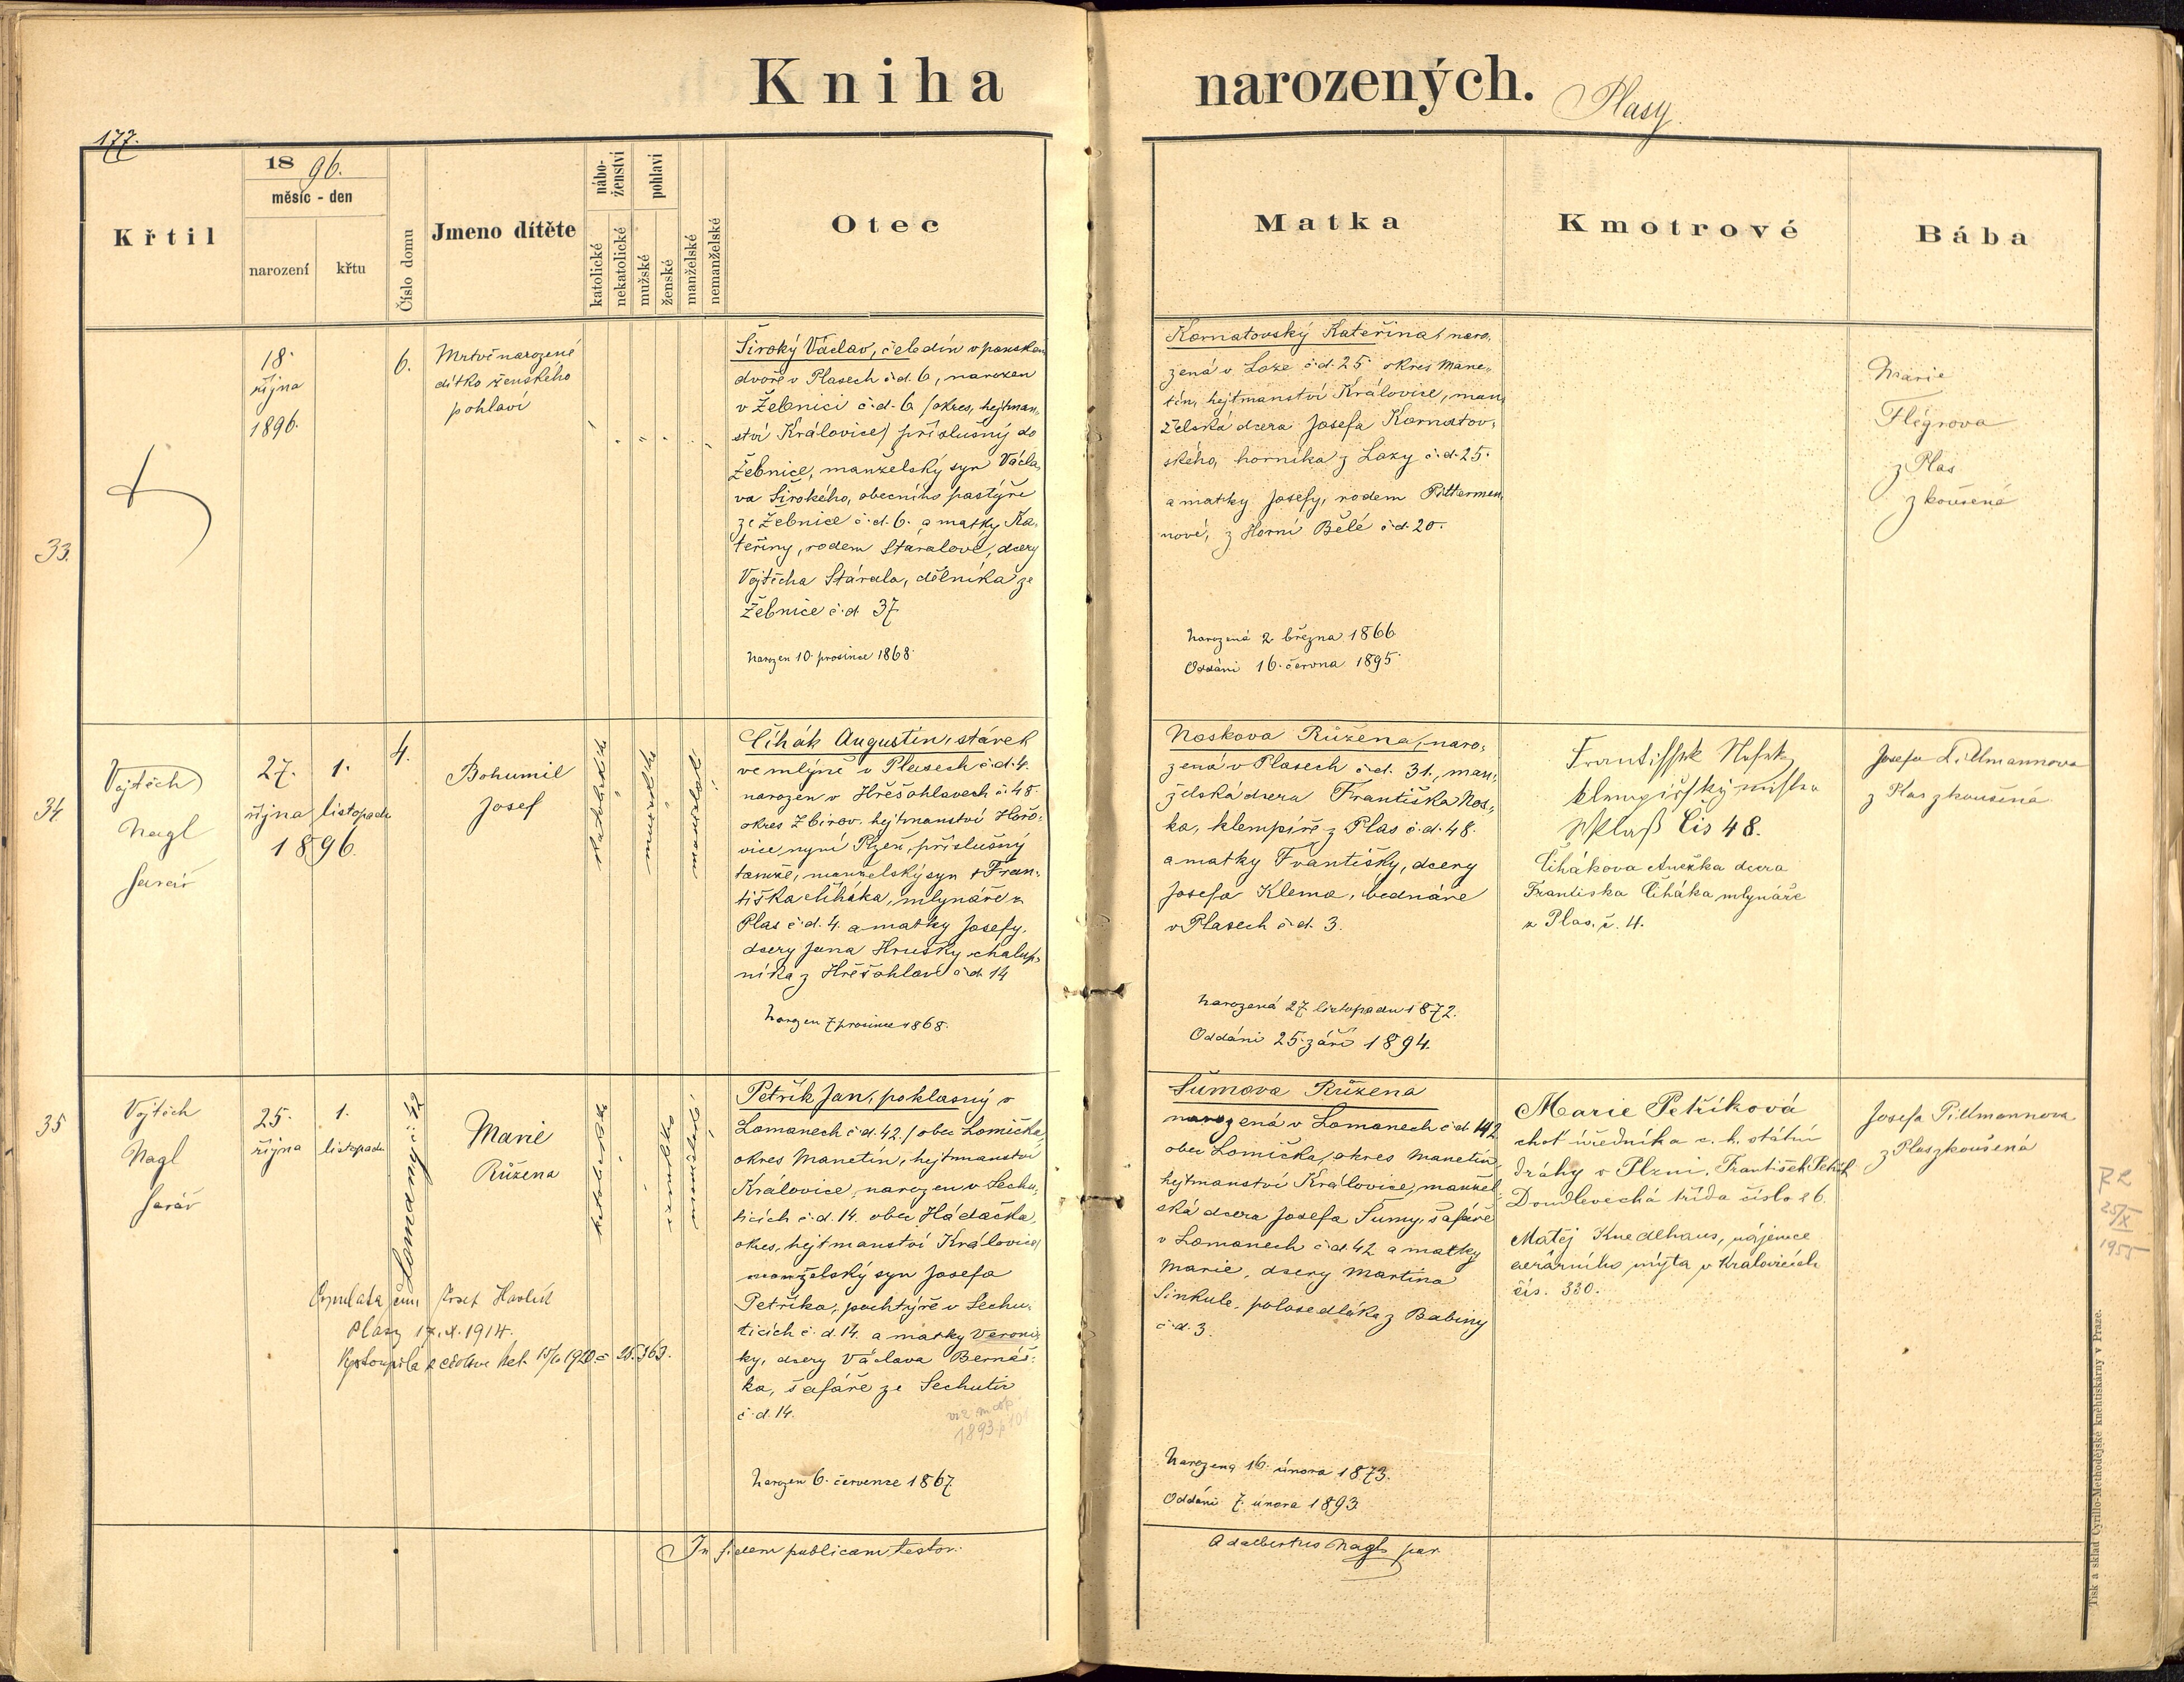 Kniha narozených.
Plasy
177.
Křtil
1896.
měsíc - den
narození
křtu
Číslo domu
Jmeno dítěte
nábo-
ženství
katolické
nekatolické
pohlaví
mužské
ženské
manželské
nemanželské
Otec
Matka
Kmotrové
Bába
33.
18
října
1896.
6.
Mrtvě narozené
dítko ženského
pohlaví
Široký Václav, čeledín v panském
dvoře v Plasech č.d. 6, narozen
v Žebnici č.d. 6 (okres, hejtman-
ství Kralovice) příslušný do
Žebnice, manželský syn Václa-
va Širokého, obecního pastýře
ze Žebnice č.d. 6. a matky Ka-
teřiny, rodem Stáralové, dcery
Vojtěcha Stárala, dělníka ze
Žebnice č.d. 37
Narozen 10. prosince 1868.
Kornatovský Kateřina, naro-
zená v Loze č.d. 25 okres Mane-
tín, hejtmanství Kralovice, man-
želská dcera Josefa Kornatov-
ského, horníka z Lozy č.d. 25.
a matky Josefy, rodem Pitterman-
nové, z Horní Bělé č.d. 20.
Narozená 2. března 1866
Oddáni 16. června 1895
Marie
Flégrova
z Plas
zkoušená
34
Vojtěch
Nagl
farář
27. 1.
října listopadu
1896.
4.
Bohumil
Josef
katolické
mužské
manželské
Čihák Augustin, stárek
ve mlýně v Plasech č.d. 4.
narozen v Hřešihlavech č. 48
okres Zbirov. hejtmanství Hořo-
vice nyní Plzeň, příslušný
tamže, manželský syn † Fran-
tiška Čiháka, mlynáře z
Plas č.d. 4. a matky Josefy,
dcery Jana Hrušky, chalup-
níka z Hřešihlav č.d. 14
Narozen 7 prosince 1868.
Noskova Růžena, naro-
zená v Plasech č.d. 31., man-
želská dcera Františka Nos-
ka, klempíře z Plas č.d. 48.
a matky Františky, dcery
Josefa Klema, bednáře
v Plasech č.d. 3.
Narozená 27. listopadu 1872.
Oddáni 25. září 1894.
čis 48.
Čihákova Anežka dcera
Františka Čiháka, mlynáře
z Plas. č. 4.
Josefa Pillmannova
z Plas zkoušená
35
Vojtěch
Nagl
farář
25. 1.
října listopadu
Lomany č. 42
Marie
Růžena
katolické
ženské
manželské
Josef Havlík
Plasy 17.X.1914.
Vystoupila z církve 1920 č. 25.363.
Petřík Jan, poklasný v
Lomanech č.d. 42. (obec Lomička,
okres Manetín, hejtmanství
Kralovice, narozen v Sechu-
ticích č.d. 14. obec Hádačka,
okres, hejtmanství Kralovice)
manželský syn Josefa
Petříka, pachtýře v Sechu-
ticích č.d. 14. a matky Veroni-
ky, dcery Václava Bernáš-
ka, šafáře ze Sechutic
č.d. 14.
Narozen 6. července 1867.
Šumova Růžena
narozená v Lomanech č.d. 42
obec Lomička, okres Manetín
hejtmanství Kralovice, manžel-
ská dcera Josefa Šumy, šafáře
v Lomanech č.d. 42 a matky
Marie, dcery Martina
Sinkule, polosedláka z Babiny
č.d. 3.
Narozena 16. února 1873.
Oddáni 7. února 1893.
Marie Petříková
choť úředníka c. k. státní
dráhy v Plzni. František Petřík
Doudlevecká třída číslo 26.
Matěj Knedlhans, nájemce
aerárního mýta v Kralovicích
čís. 330.
Josefa Pillmannova
z Plas zkoušená
25/X
1955
In fidem publicam testor.
Adalbertus Nagl par.
Tisk a sklad Cyrillo-Methodějské knihtiskárny v Praze.